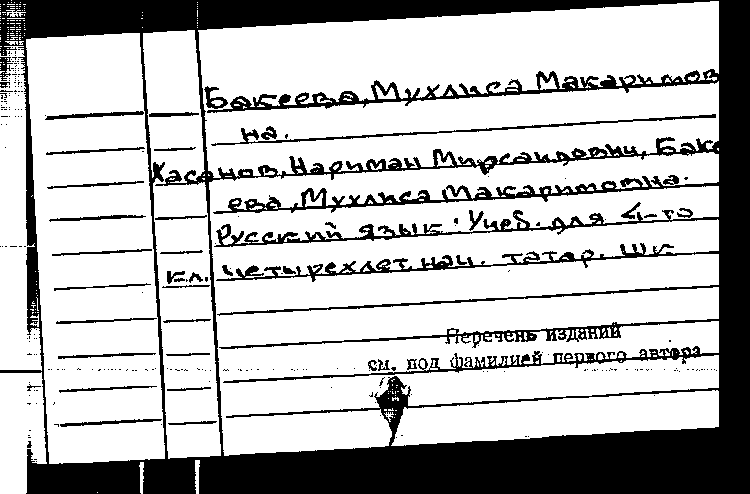 Бакеева, Мухлиса Макаримов
на.
Хасанов, Нариман Мирсаидович, Баке
ева, Мухлиса Макаримовна.
Русский язык: Учеб. для 4-го
кл. четырехлет. нач. татар. шк
Перечень изданий
см. под фамилией первого автора